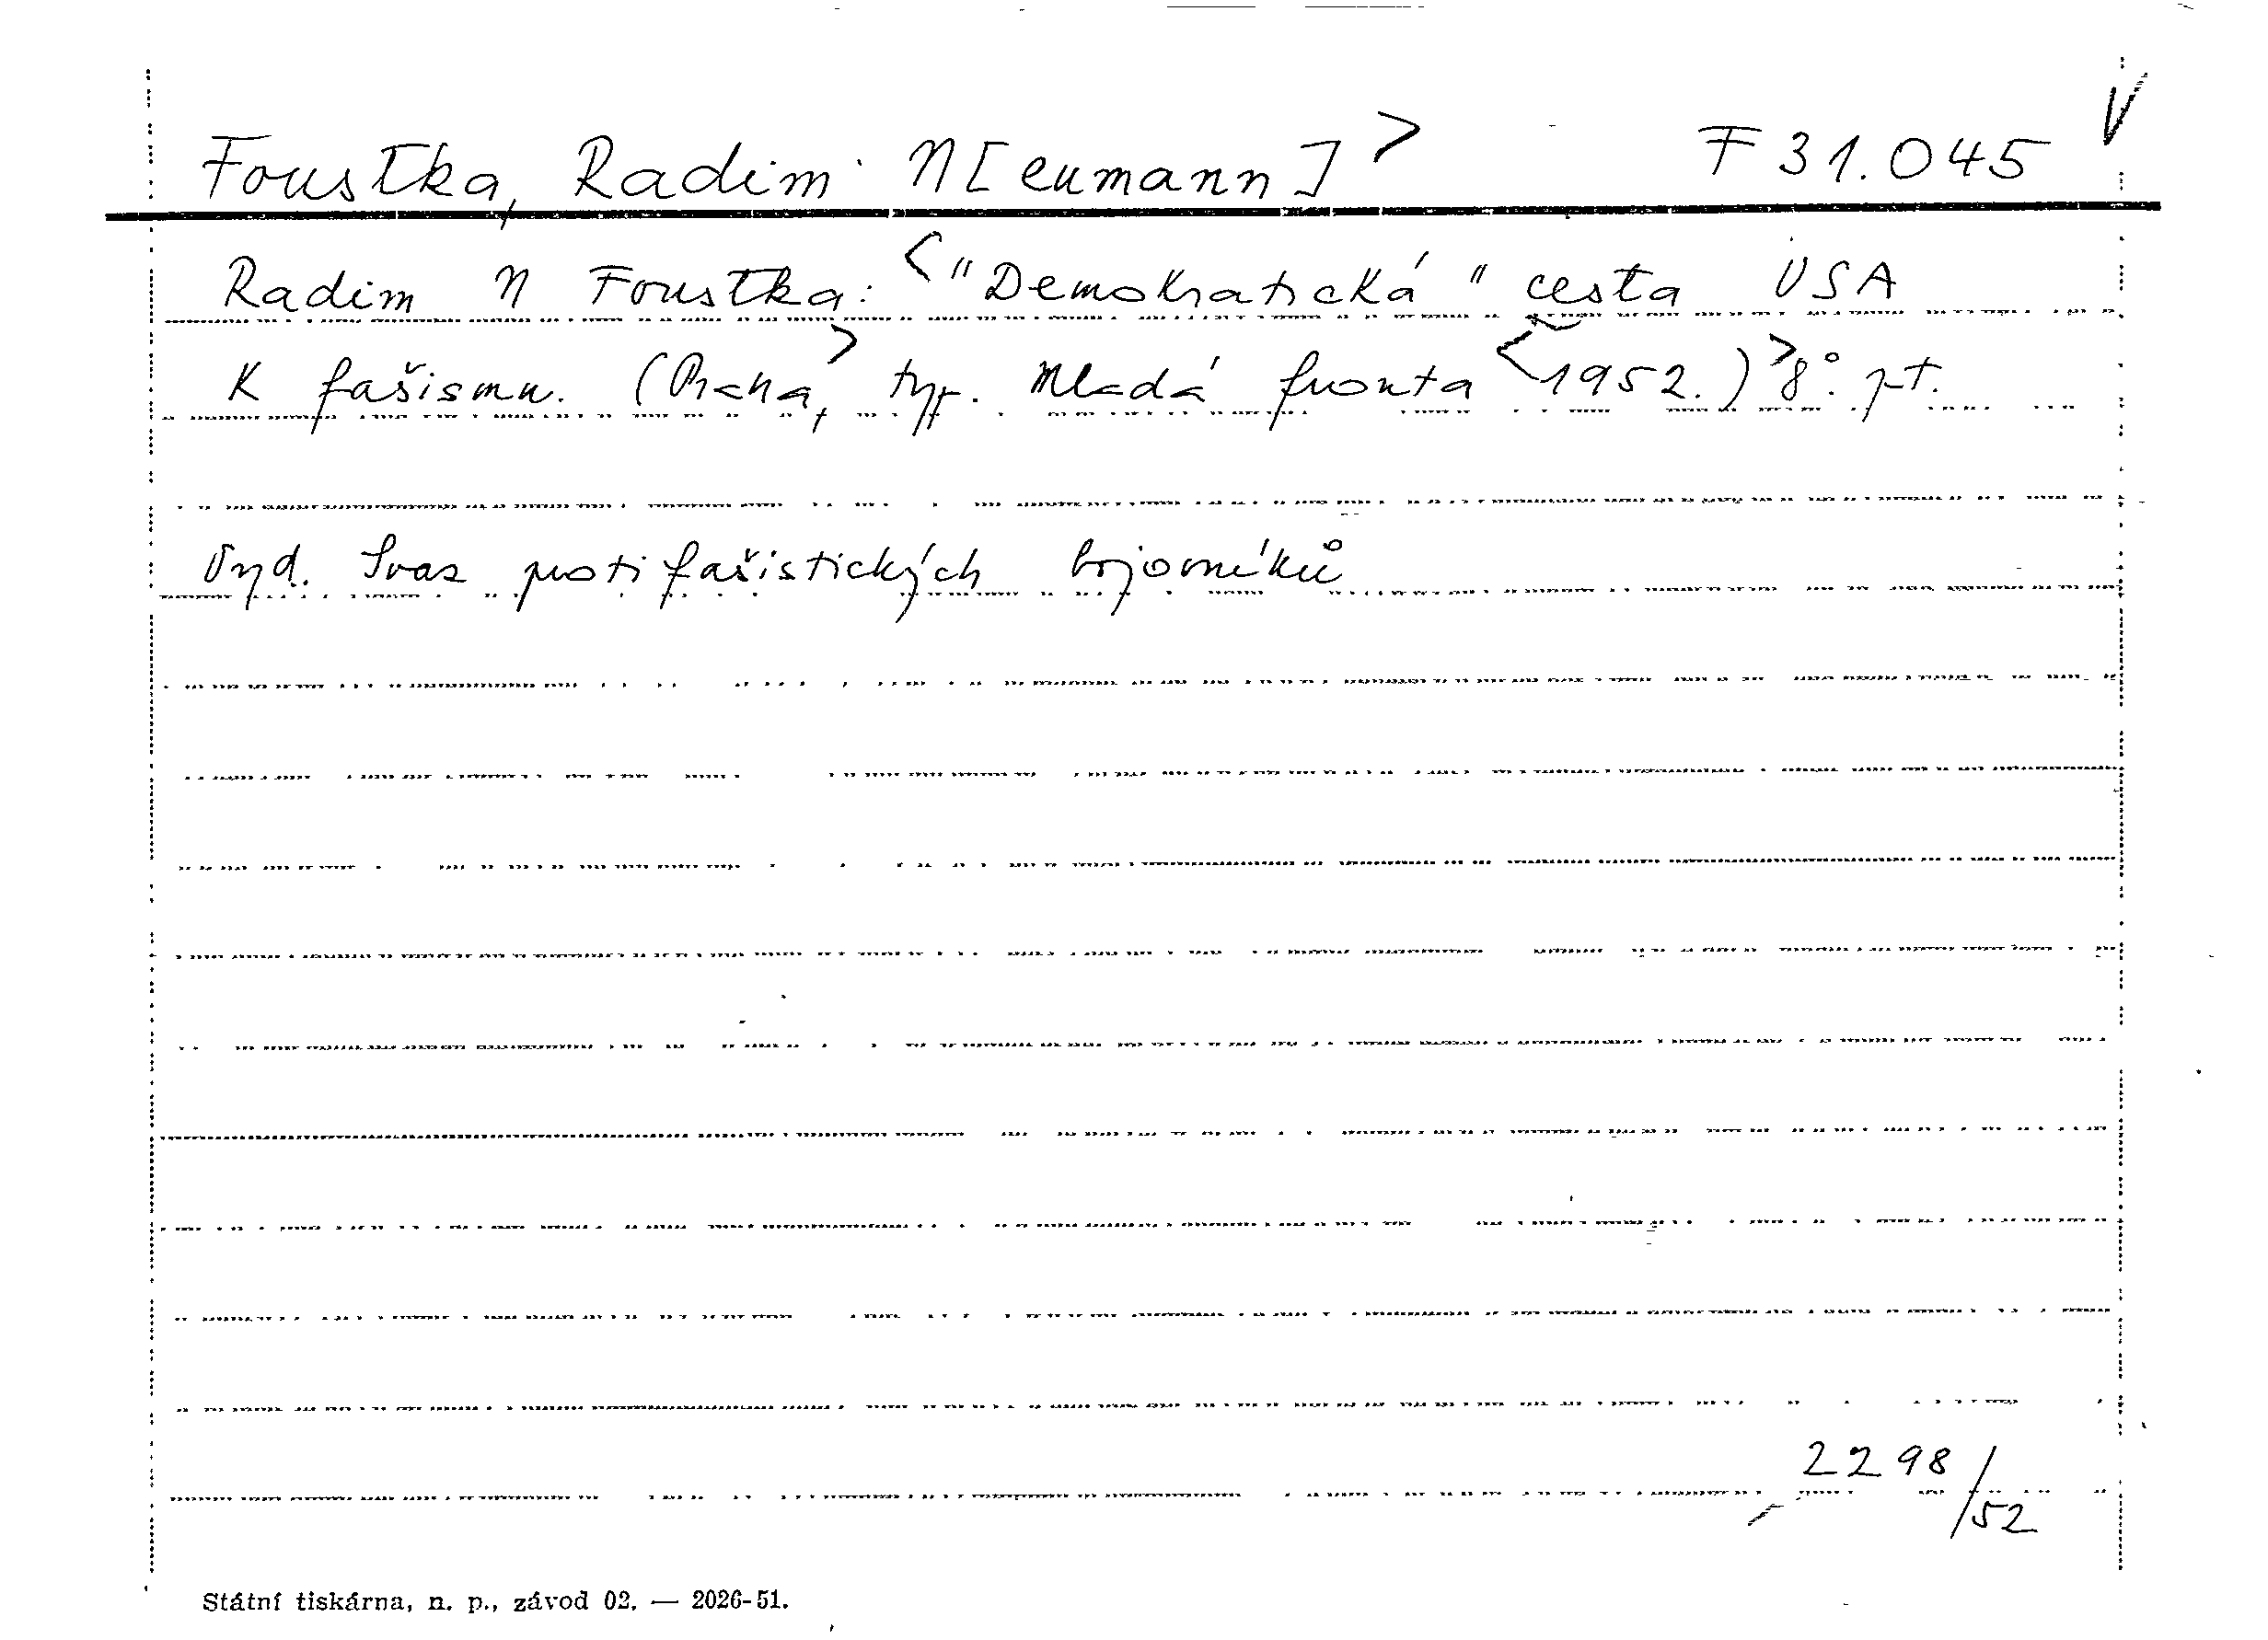 Foustka, Radim N[eumann]> F 31.045 V
Radim N Foustka: <"Demokratická" cesta USA
k fašismu. (Praha,> typ. Mladá fronta <1952.)> 8°. pt.
Vyd. Svaz protifašistických bojovníků
2298/52
Státní tiskárna, n. p., závod 02. — 2026-51.